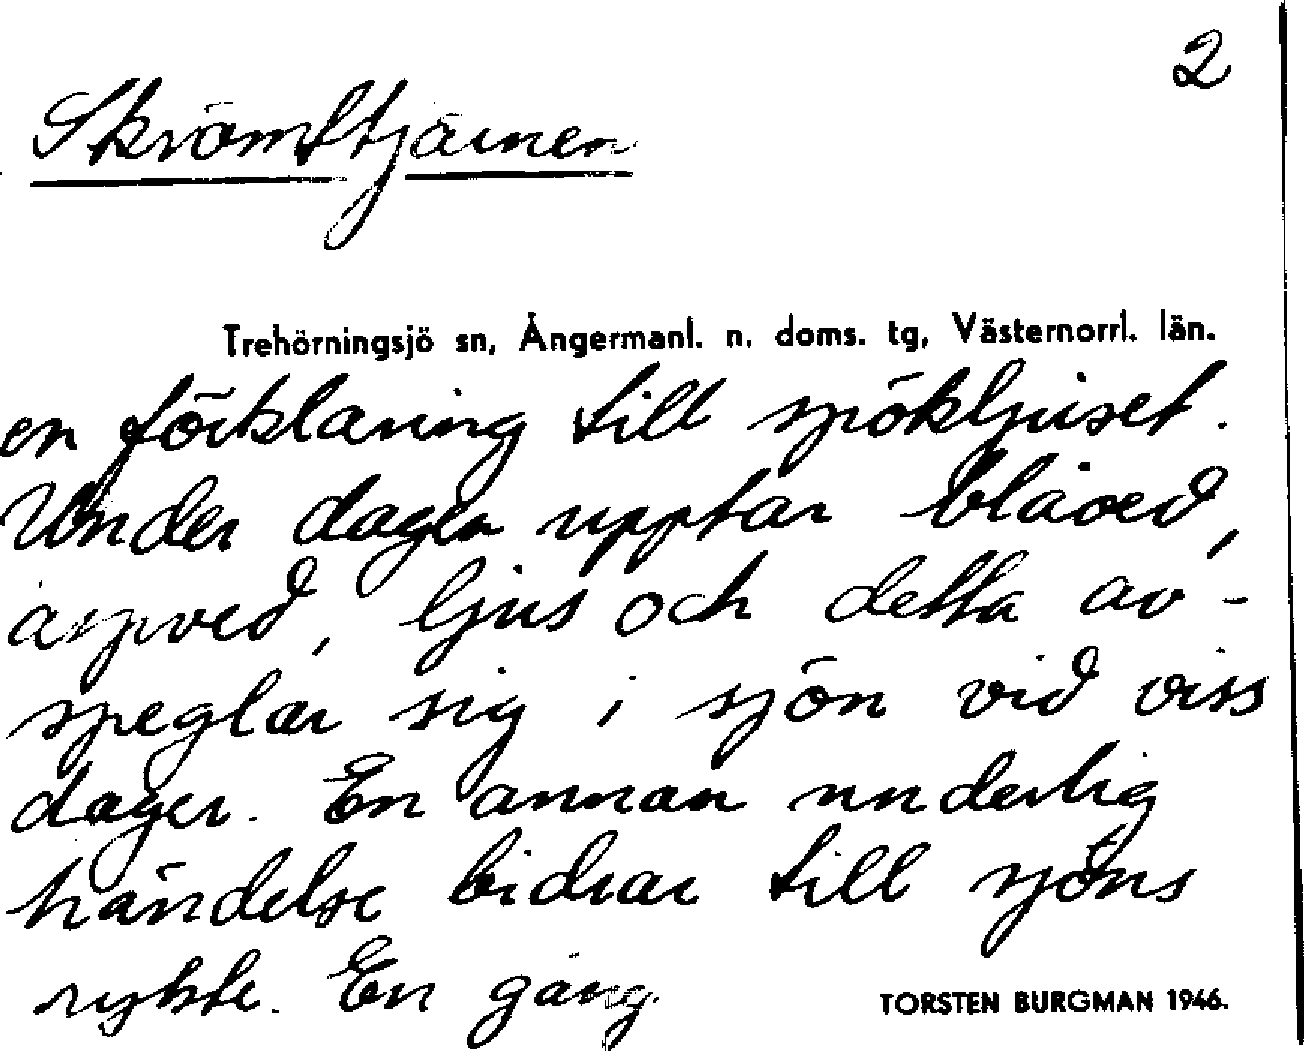 2
Skrämstjärnen
Trehörningsjö sn, Ångermanl. n. doms. tg, Västernorrl. län.
en förklaring till spökljuset.
Under dagen upptar blåved,
aspved, ljus och detta av-
speglar sig i sjön vid viss
dager. En annan underlig
händelse bidrar till sjöns
rykte. En gång
TORSTEN BURGMAN 1946.